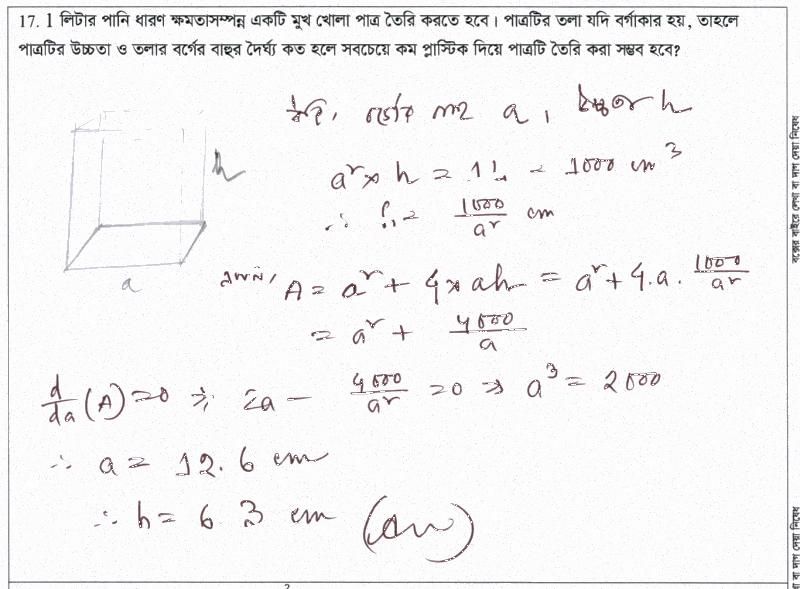 17. 1 লিটার পানি ধারণ ক্ষমতাসম্পন্ন একটি মুখ খোলা পাত্র তৈরি করতে হবে। পাত্রটির তলা যদি বর্গাকার হয়, তাহলে
পাত্রটির উচ্চতা ও তলার বর্গের বাহুর দৈর্ঘ্য কত হলে সবচেয়ে কম প্লাস্টিক দিয়ে পাত্রটি তৈরি করা সম্ভব হবে?
ধরি, বর্গের বাহু a, উচ্চতা h
a² × h = 1L = 1000 cm³
h
∴ h = 1000/a² cm
a
এখন, A = a² + 4 × ah = a² + 4.a. 1000/a²
= a² + 4000/a
d/da (A) = 0 ⇒ 2a − 4000/a² = 0 ⇒ a³ = 2000
∴ a = 12.6 cm
∴ h = 6.3 cm (Ans)
বক্সের বাইরে লেখা বা দাগ দেয়া নিষেধ
বা দাগ দেয়া নিষেধ